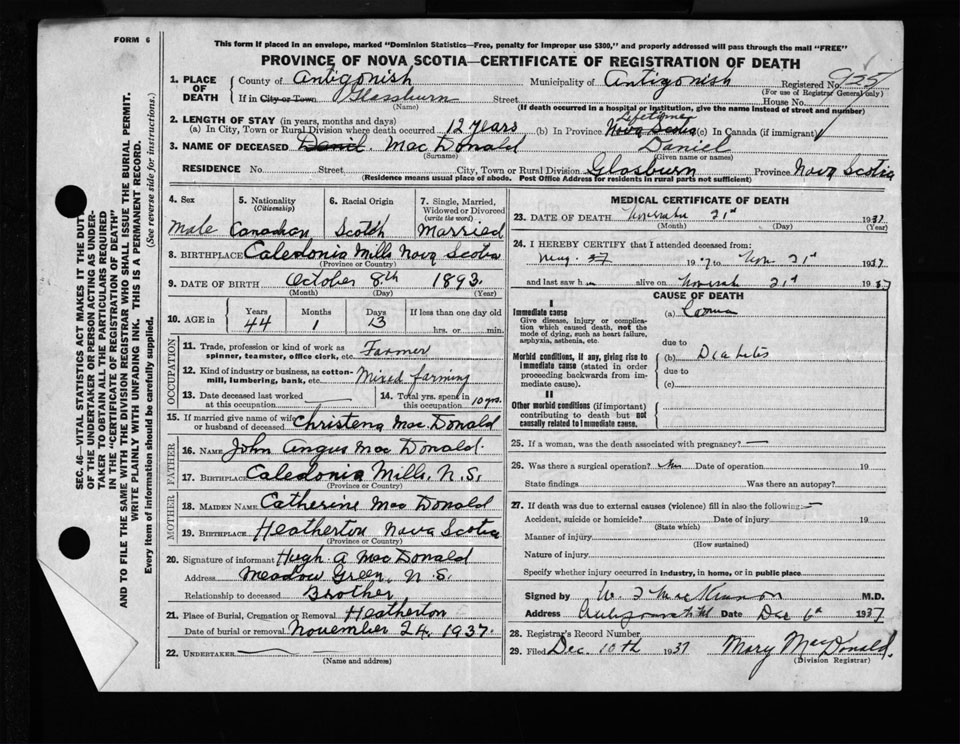 FORM 6
This form if placed in an envelope, marked "Dominion Statistics—Free, penalty for improper use $300," and properly addressed will pass through the mail "FREE"
PROVINCE OF NOVA SCOTIA—CERTIFICATE OF REGISTRATION OF DEATH
1. PLACE OF DEATH County of Antigonish Municipality of Antigonish Registered No.
(For use of Registrar General only)
If in City or Town Glassburn Street House No.
(Name) (If death occurred in a hospital or institution, give the name instead of street and number)
2. LENGTH OF STAY (in years, months and days) Lifetime
(a) In City, Town or Rural Division where death occurred 12 years (b) In Province Nova Scotia (c) In Canada (if immigrant)
3. NAME OF DECEASED Daniel MacDonald Daniel
(Surname) (Given name or names)
RESIDENCE No. Street City, Town or Rural Division Glasburn Province Nova Scotia
(Residence means usual place of abode. Post Office Address for residents in rural parts not sufficient)
4. Sex 5. Nationality (Citizenship) 6. Racial Origin 7. Single, Married, Widowed or Divorced (write the word)
Male Canadian Scotch Married
8. BIRTHPLACE Caledonia Mills Nova Scotia
(Province or Country)
9. DATE OF BIRTH October 8th 1893
(Month) (Day) (Year)
10. AGE in Years Months Days If less than one day old
44 1 13 hrs. or min.
OCCUPATION
11. Trade, profession or kind of work as spinner, teamster, office clerk, etc. Farmer
12. Kind of industry or business, as cotton-mill, lumbering, bank, etc. Mixed farming
13. Date deceased last worked at this occupation 14. Total yrs. spent in this occupation 10 yrs.
15. If married give name of wife or husband of deceased Christena MacDonald
FATHER
16. NAME John Angus MacDonald
17. BIRTHPLACE Caledonia Mills, N.S.
(Province or Country)
MOTHER
18. MAIDEN NAME Catherine MacDonald
19. BIRTHPLACE Heatherton Nova Scotia
(Province or Country)
20. Signature of informant Hugh A MacDonald
Address Meadow Green, N.S.
Relationship to deceased Brother
21. Place of Burial, Cremation or Removal Heatherton
Date of burial or removal November 24, 1937.
22. UNDERTAKER
(Name and address)
MEDICAL CERTIFICATE OF DEATH
23. DATE OF DEATH November 21st 1937
(Month) (Day) (Year)
24. I HEREBY CERTIFY that I attended deceased from:
1937 to Nov 21st 1937
and last saw h alive on November 21st 1937
CAUSE OF DEATH
I
Immediate cause (a) Coma
Give disease, injury or complication which caused death, not the mode of dying, such as heart failure, asphyxia, asthenia, etc.
due to
Morbid conditions, if any, giving rise to immediate cause (stated in order proceeding backwards from immediate cause). (b) Diabetes
due to
(c)
II
Other morbid conditions (if important) contributing to death but not causally related to immediate cause.
25. If a woman, was the death associated with pregnancy?
26. Was there a surgical operation? Date of operation 19
State findings Was there an autopsy?
27. If death was due to external causes (violence) fill in also the following:
Accident, suicide or homicide? Date of injury 19
(State which)
Manner of injury
(How sustained)
Nature of injury
Specify whether injury occurred in industry, in home, or in public place
Signed by M.D.
Address Date Dec 6th 1937
28. Registrar's Record Number
29. Filed Dec. 10th 1937 Mary MacDonald.
(Division Registrar)
SEC. 46—VITAL STATISTICS ACT MAKES IT THE DUTY
OF THE UNDERTAKER OR PERSON ACTING AS UNDER-
TAKER TO OBTAIN ALL THE PARTICULARS REQUIRED
IN THE "CERTIFICATE OF REGISTRATION OF DEATH"
AND TO FILE THE SAME WITH THE DIVISION REGISTRAR WHO SHALL ISSUE THE BURIAL PERMIT.
WRITE PLAINLY WITH UNFADING INK. THIS IS A PERMANENT RECORD.
Every item of information should be carefully supplied. (See reverse side for instructions.)